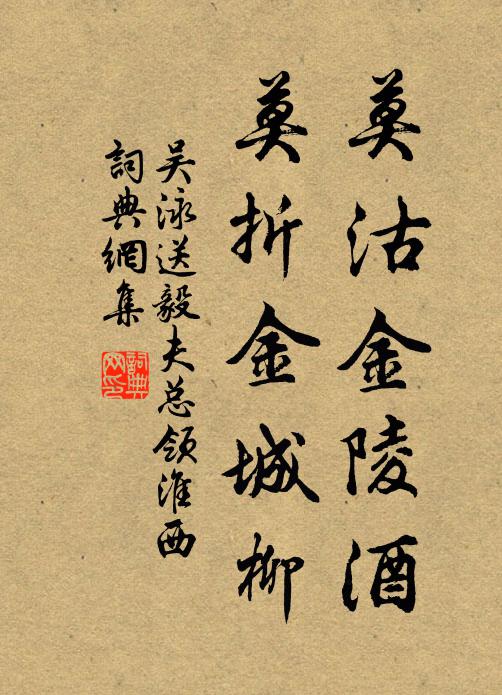 莫沽金陵酒
莫折金城柳
吴泳送毅夫总领淮西
詞典網集
詞典网印